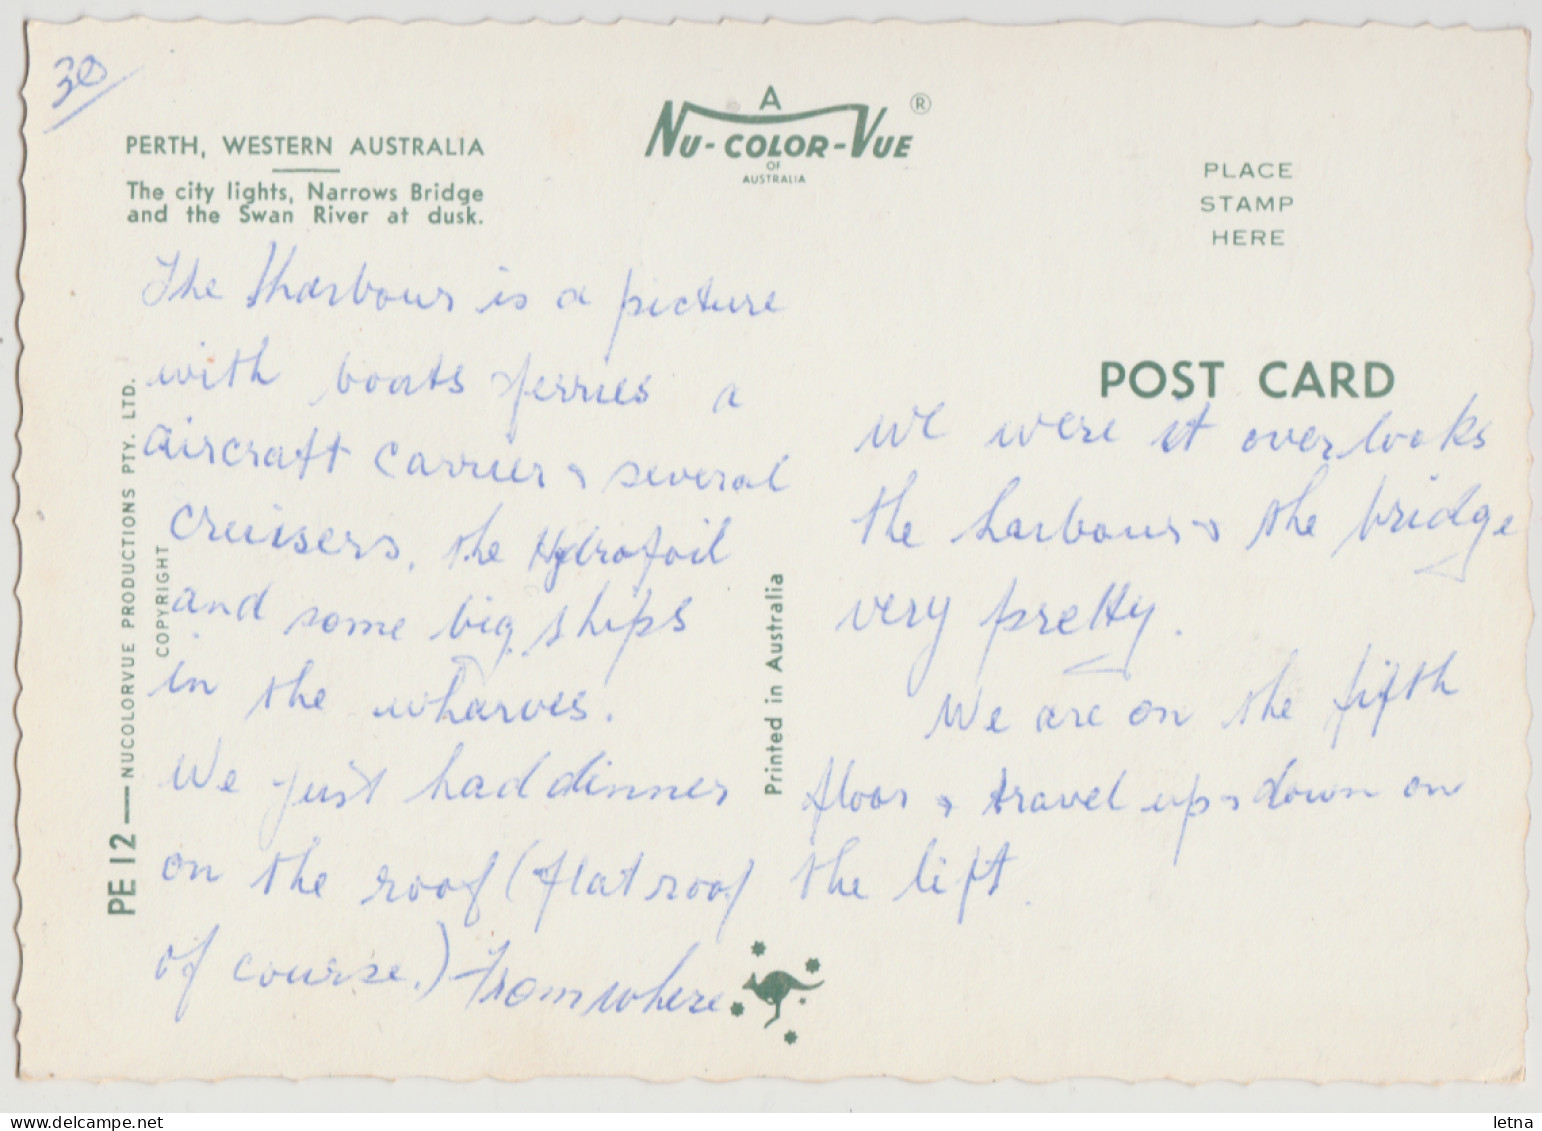 30
PERTH, WESTERN AUSTRALIA
The city lights, Narrows Bridge
and the Swan River at dusk.
A
NU-COLOR-VUE ®
OF
AUSTRALIA
PLACE
STAMP
HERE
POST CARD
PE 12 — NUCOLORVUE PRODUCTIONS PTY. LTD.
COPYRIGHT
Printed in Australia
The Harbour is a picture
with boats ferries a
aircraft carrier & several
cruisers, the Hydrofoil
and some big ships
in the wharves.
We just had dinner
on the roof (flat roof
of course.) From where
we were it overlooks
the harbour & the bridge
very pretty.
We are on the fifth
floor & travel up & down on
the lift.
letna